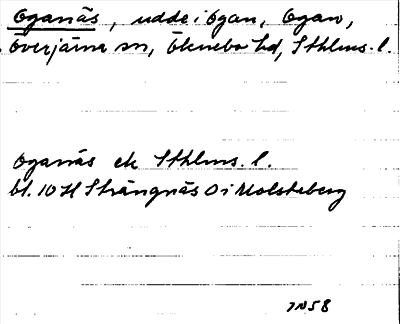 Oganäs, udde i Ogan, Ogan,
Överjärna sn, Öknebo hd, Sthlms. l.
Oganäs ek Sthlms. l.
bl. 10 H Strängnäs O i Molstaberg
IN58